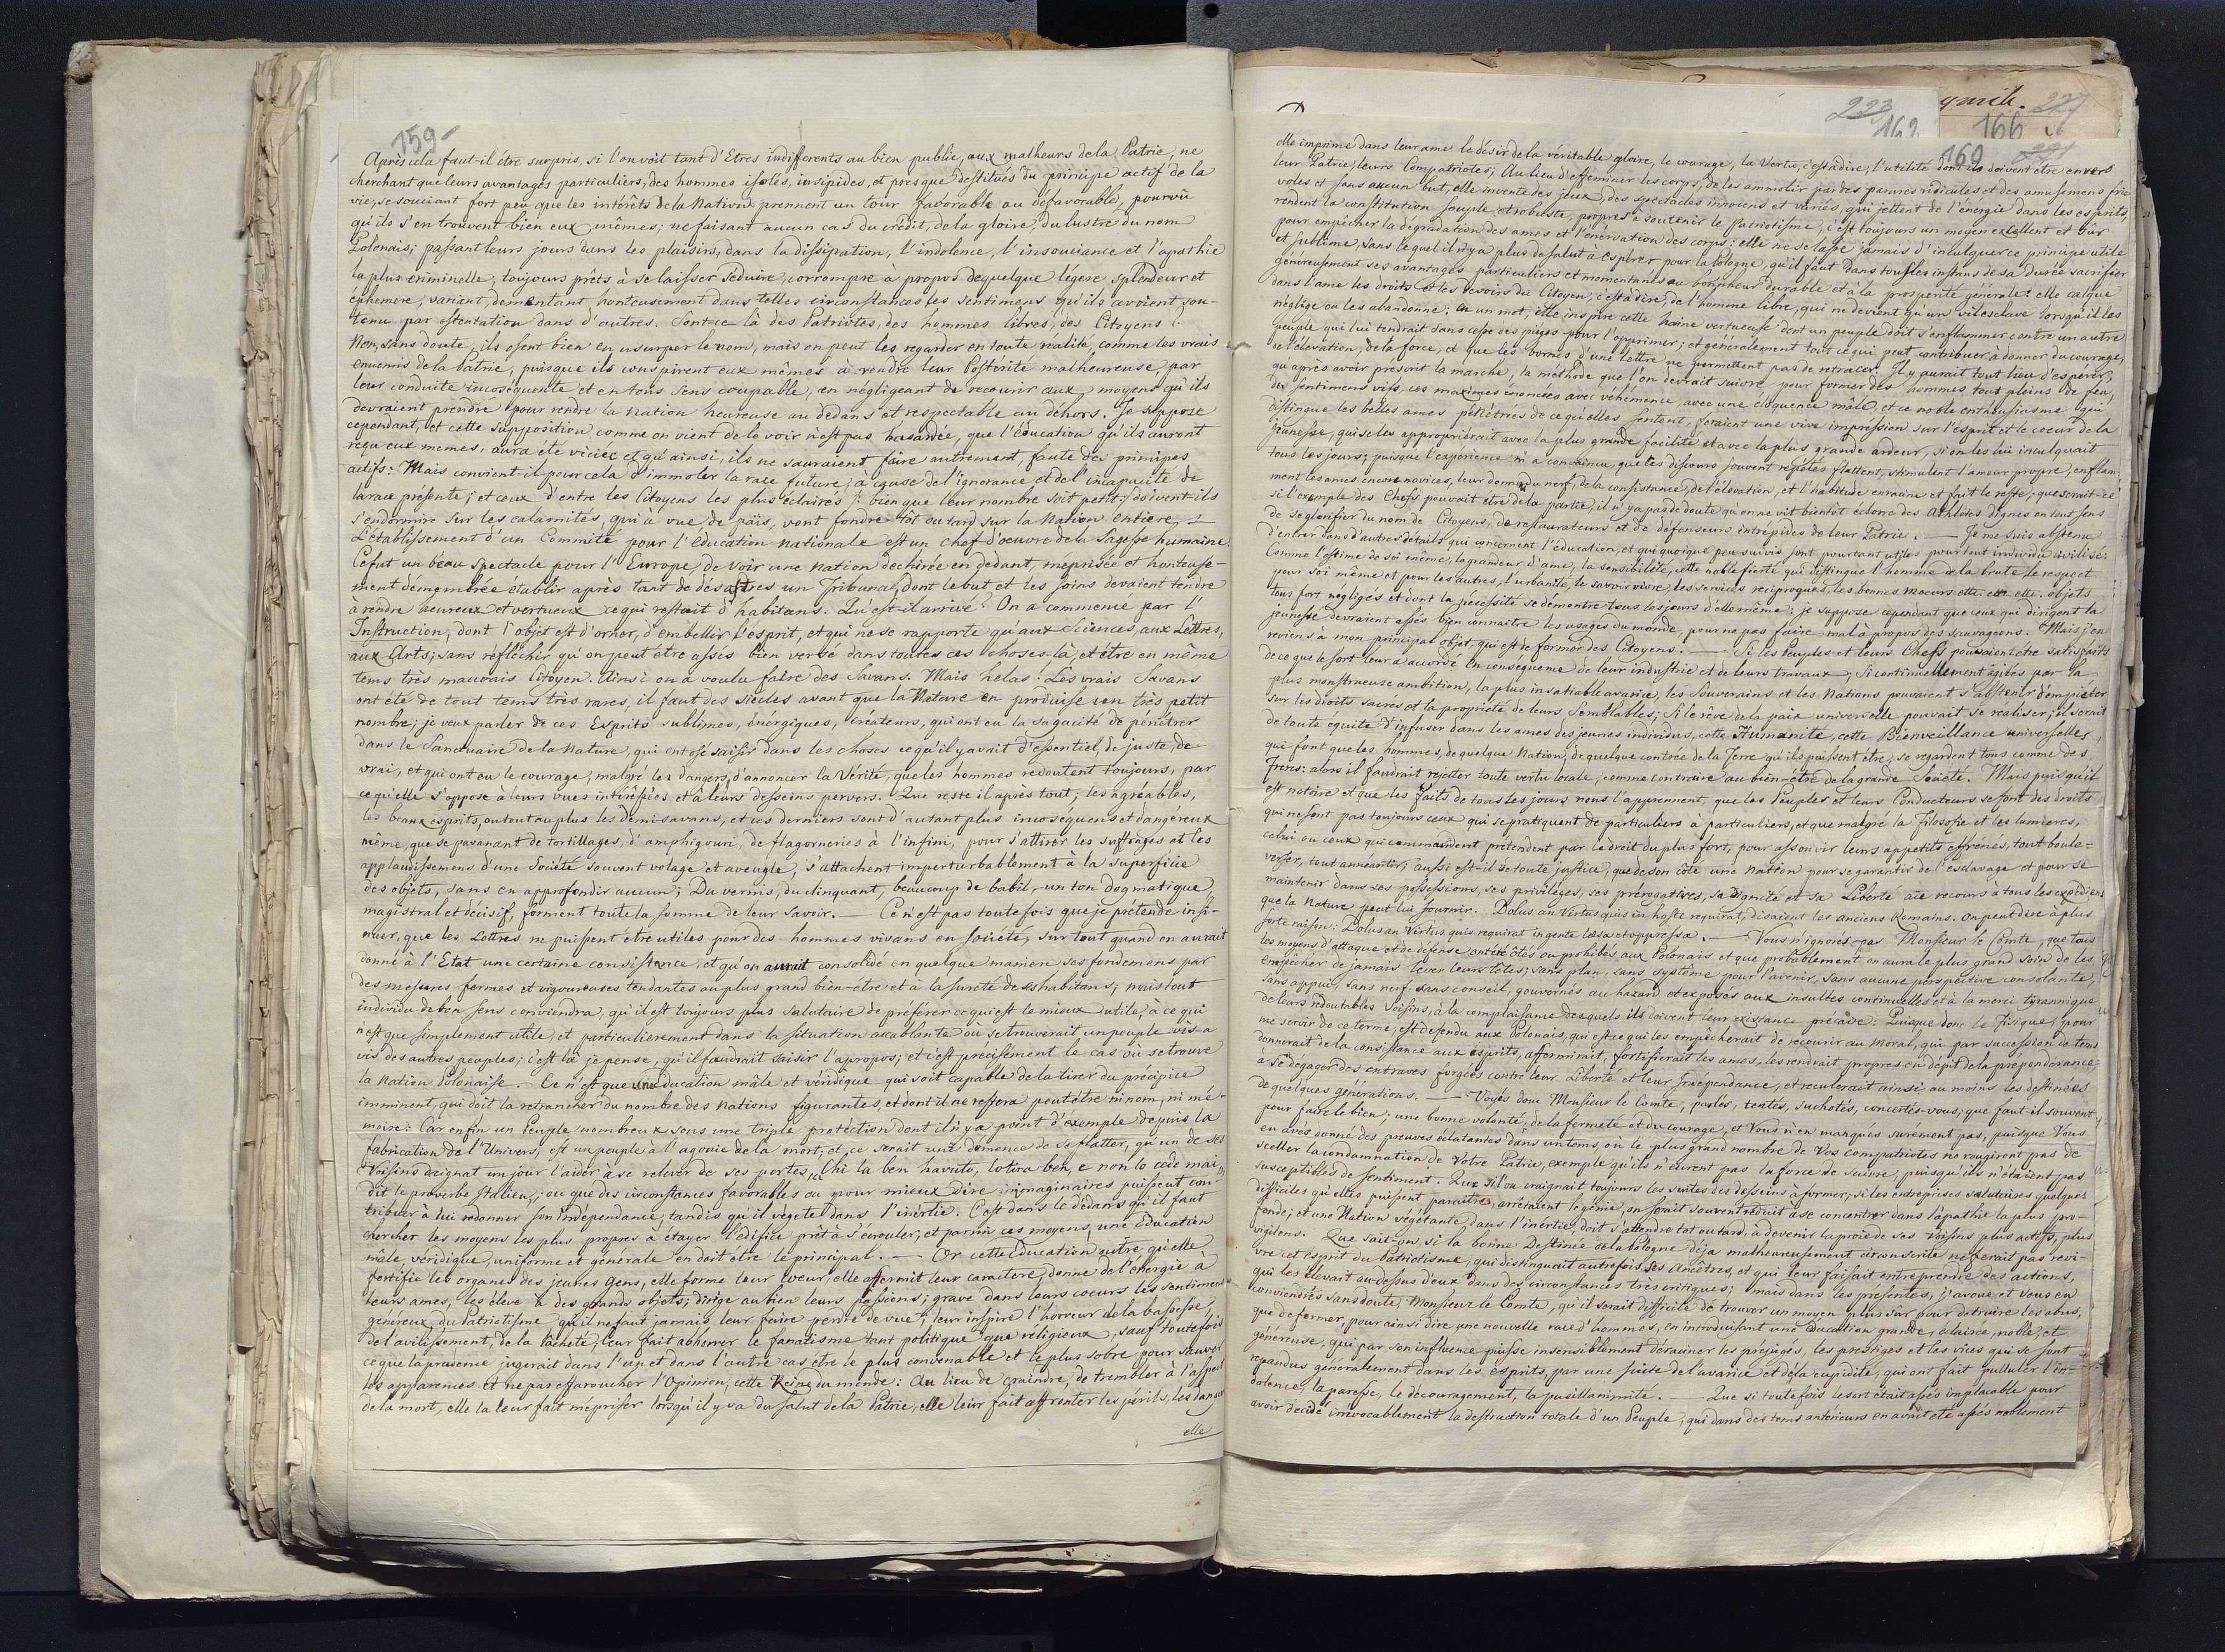 159
Après cela faut-il être surpris, si l'on voit tant d'Etres indifferents au bien public, aux malheurs de la Patrie, ne
cherchant que leurs avantages particuliers, des hommes isolés, insipides, et presque destitués du principe actif de la
vie, se souciant fort peu que les intérêts de la Nation prennent un tour favorable ou défavorable, pourvû
qu'ils s'en trouvent bien eux mêmes; ne faisant aucun cas du crédit, de la gloire, du lustre du nom
Polonais; passant leurs jours dans les plaisirs, dans la dissipation, l'indolence, l'insouciance et l'apathie
la plus criminelle, toujours prêts à se laisser séduire, corrompre à propos de quelque légere splendeur et
éphemere, variant, démentant honteusement dans telles circonstances les sentimens qu'ils avoient sou-
tenu par ostentation dans d'autres. Sont-ce là des Patriotes, des hommes libres, des Citoyens?
Non, sans doute, ils osent bien en usurper le nom, mais on peut les regarder en toute réalité, comme les vrais
ennemis de la Patrie, puisque ils conspirent eux mêmes à rendre leur Postérité malheureuse, par
leur conduite incoséquente et en tous sens coupable, en négligeant de recourir aux moyens qu'ils
devraient prendre pour rendre la Nation heureuse au dedans et respectable au dehors. Je suppose
cependant, et cette supposition comme on vient de le voir n'est pas hasardée, que l'éducation qu'ils auront
reçu eux memes, aura été viciée et qu'ainsi, ils ne sauraient faire autrement, faute de principes
actifs: Mais convient-il pour cela d'immoler la race future, à cause de l'ignorance et de l'incapacité de
la race présente; et ceux d'entre les Citoyens les plus éclairés /: bien que leur nombre soit petit :/ doivent-ils
s'endormir sur les calamités, qui à vue de païs, vont fondre tôt ou tard sur la Nation entiere, —
L'établissement d'un Commité pour l'éducation nationale est un chef d'oeuvre de la sagesse humaine
Ce fut un beau spectacle pour l'Europe, de voir une nation dechirée en dedant, méprisée et honteuse-
ment démembrée établir après tant de désastres un Tribunal, dont le but et les soins devaient tendre
à rendre heureux et vertueux ce qui restait d'habitans. Qu'est-il arrivé? On a commencé par l'
Instruction, dont l'objet est d'orner, d'embellir l'esprit, et qui ne se rapporte qu'aux Sciences, aux Lettres,
aux Arts; sans réfléchir qu'on peut être assés bien versé dans toutes ces choses-là, et être en même
tems très mauvais Citoyen. Ainsi on a voulu faire des Savans. Mais helas! Les vrais Savans
ont été de tout tems très rares, il faut des siécles avant que la Nature en produise un très petit
nombre; je veux parler de ces Esprits sublimes, énergiques, créateurs, qui ont eu la sagacité de pénétrer
dans le Sanctuaire de la Nature, qui ont osé saisir dans les choses ce qu'il y avait d'essentiel, de juste, de
vrai, et qui ont eu le courage, malgré les dangers, d'annoncer la Vérité, que les hommes redoutent toujours, par
ce qu'elle s'oppose à leurs vues intéressées et à leurs desseins pervers. Que reste il après tout; les agréables,
les beaux esprits, ou tout au plus les demi-savans, et ces derniers sont d'autant plus incoséquens et dangereux
même, que se pavanant de tortillages, d'amphigouri, de flagorneries à l'infini, pour s'attirer les suffrages et les
applaudissemens d'une Société souvent volage et aveugle, s'attachent imperturbablement à la superficie
des objets, sans en approfondir aucun; Du vernis, du clinquant, beaucoup de babil, un ton dogmatique
magistral et décisif, forment toute la somme de leur savoir. — Ce n'est pas toutefois que je prétende insi-
nuer, que les Lettres ne puissent etre utiles pour des hommes vivans en société, sur tout quand on aurait
donné à l'Etat une certaine consistence, et qu'on aurait consolidé en quelque maniere ses fondemens par
des mesures fermes et vigoureuses tendantes au plus grand bien-être et à la sureté de ses habitans; mais tout
individu de bon sens conviendra, qu'il est toujours plus salutaire de préférer ce qui est le mieux utile, à ce qui
n'est que simplement utile, et particulierement dans la situation acablante où se trouverait un peuple vis-a
vis des autres peuples; c'est là je pense, qu'il faudrait saisir l'apropos; et c'est précisément le cas où se trouve
la Nation Polonaise. Ce n'est que une Education mâle et véridique qui soit capable de la tirer du précipice
imminent, qui doit la retrancher du nombre des Nations figurantes, et dont il ne restera peut être ni nom, ni mé-
moire: Car enfin un Peuple nombreux sous une triple protection dont il n'y a point d'exemple depuis la
fabrication de l'Univers, est un peuple à l'agonie de la mort, et ce serait une démence de se flatter, qu'un de ses
Voisins daignat un jour l'aider à se relever de ses pertes, „Chi la ben havuto, lo tira ben, e non lo cede mai„
dit le proverbe Italien; ou que des circonstances favorables ou pour mieux dire immaginaires puissent con-
tribuer à lui redonner son indépendance, tandis qu'il végete dans l'inértie. C'est dans le dedans qu'il faut
chercher les moyens les plus propres à étayer l'édifice prêt à s'écrouler; et parmi ces moyens, une Education
mâle, véridique, uniforme et générale en doit etre le principal. — Or cette Education outre qu'elle
fortifie les organes des jeunes Gens, elle forme leur coeur, elle affermit leur caractere, donne de l'énergie à
leurs ames, les éleve à des grands objets; dirige au bien leurs passions; grave dans leurs coeurs les sentimens
généreux du Patriotisme qu'il ne faut jamais leur faire perdre de vue; leur inspire l'horreur de la bassesse,
de l'avilissement, de la lacheté; leur fait abhorrer le fanatisme tant politique que religieux, sauf toutefois
ce que la prudence jugerait dans l'un et dans l'autre cas être le plus convenable et le plus sobre, pour sauver
les apparences et ne pas effaroucher l'Opinion, cette Reine du monde: Au lieu de craindre, de trembler à l'aspect
de la mort, elle la leur fait mépriser lorsqu'il y va du salut de la Patrie, elle leur fait affronter les périls, les dangers
elle
223
162
227
166
169
elle imprime dans leur ame le désir de la véritable gloire, le courage, la Vertu, c'est à dire, l'utilité dont ils doivent être envers
leur Patrie, leurs Compatriotes; Au lieu d'effeminer les corps, de les ammolir par des parures ridicules et des amusemens fri-
voles et sans aucun but, elle invente des jeux, des spectacles innocens et variés, qui jettent de l'énergie dans les esprits,
rendent la constitution souple et robuste, propres à soutenir le Patriotisme; c'est toujours un moyen excellent et sûr
pour empêcher la dégradation des ames et l'énérvation des corps: elle ne se lasse jamais d'inculquer ce principe utile
et sublime, sans lequel il n'y a plus de salut à espérer pour la Pologne, qu'il faut dans tous les instans de sa durée sacrifier
généreusement ses avantages particuliers et momentanés au bonheur durable et à la prosperité générale: elle calque
dans l'ame les droits et les devoirs du Citoyen, c'est à dire, de l'homme libre, qui ne devient qu'un vil esclave lorsqu'il les
néglige ou les abandonne: en un mot, elle inspire cette haine vertueuse dont un peuple doit s'enflammer contre un autre
peuple qui lui tendrait sans cesse des pieges pour l'opprimer; et généralement tout ce qui peut contribuer à donner du courage,
de l'élévation, de la force, et que les bornes d'une Lettre ne permettent pas de retracer. Il y aurait tout lieu d'espérer,
qu'après avoir prescrit la marche, la méthode que l'on devrait suivre pour former des hommes tout pleins de feu,
des sentimens vifs, ces maximes énoncées avec véhemence, avec une éloquence mâle, et ce noble enthousiasme qui
distingue les belles ames pénétrées de ce qu'elles sentent, feraient une vive impression sur l'esprit et le coeur de la
Jeunesse, qui se les approprierait avec la plus grande facilité et avec la plus grande ardeur, si on les lui inculquait
tous les jours; puisque l'expérience m'a convaincu, que les discours souvent répétés flattent, stimulent l'amour propre, enflam-
ment les ames encore novices, leur donne du nerf, de la consistance, de l'élévation, et l'habitude enracine et fait le reste; que serait-ce
si l'exemple des Chefs pouvait etre de la partie, il n'y a pas de doute qu'on ne vit bientôt éclorre des Athletes dignes en tout sens
de se glorifier du nom de Citoyens, de restaurateurs et de défenseurs intrépides de leur Patrie. — Je me suis abstenu
d'entrer dans d'autres détails qui concernent l'éducation, et qui quoique peu suivis sont pourtant utiles pour tout individu civilisé:
Comme l'estime de soi même, la grandeur d'ame, la sensibilité, cette noble fierté qui distingue l'homme de la brute le respect
pour soi même et pour les autres, l'urbanité, le savoir vivre, les services réciproques, les bonnes moeurs ettc. ettc. ettc. objets
tous fort negligés et dont la nécessité se démontre tous les jours d'elle même; je suppose cependant que ceux qui dirigent la
jeunesse devraient assés bien connaitre les usages du monde, pour ne pas faire mal à propos des sauvageons. Mais j'en
reviens à mon principal objet, qui est de former des Citoyens. — Si les Peuples et leurs Chefs pouvaient etre satisfaits
de ce que le sort leur a accordé en conséquence de leur industrie et de leurs travaux; Si continuellement agités par la
plus monstrueuse ambition, la plus insatiable avarice, les Souverains et les Nations pouvaient s'abstenir d'empieter
sur les droits sacrés et la propriété de leurs Semblables; Si le rêve de la paix universelle pouvait se réaliser; il serait
de toute equité d'infuser dans les ames des jeunes individus, cette Humanité, cette Bienveillance universelle,
qui font que les hommes, de quelque Nation, de quelque contrée de la Terre qu'ils puissent etre, se regardent tous comme des
Freres: alors il faudrait rejetter toute vertu locale, comme contraire au bien-etre de la grande Société. Mais puisqu'il
est notoire et que les faits de tous les jours nous l'apprennent, que les Peuples et leurs Conducteurs se font des droits
qui ne sont pas toujours ceux qui se pratiquent de particuliers à particuliers, et que malgré la Filosofie et les lumieres,
celui ou ceux qui commandent prétendent par le droit du plus fort, pour assouvir leurs appetits effrénés, tout boule-
verser, tout annéantir; aussi est-il de toute justice, que de son côté une Nation pour se garantir de l'esclavage et pour se
maintenir dans ses possessions, ses privileges, ses prérogatives, sa Dignité et sa Liberté aie recours à tous les expédiens
que la Nature peut lui fournir. Dolus an Virtus quis in hoste requirat, disaient les anciens Romains. On peut dire à plus
forte raison: Dolus an Virtus quis requirat in gente laesa et oppressa. — Vous n'ignorés pas Monsieur le Comte, que tous
les moyens d'attaque et de défense ont été ôtés ou prohibés aux Polonais et que probablement on aura le plus grand soin de les
empêcher de jamais lever leurs têtes; sans plan, sans système pour l'avenir, sans aucune perspective consolante,
sans appui, sans nerf, sans conseil, gouvernés au hazard et exposés aux insultes continuelles et à la merci tyrannique
de leurs redoutables Voisins, à la complaisance desquels ils doivent leur existance précaire: Puisque donc le Fisique, pour
me servir de ce terme, est défendu aux Polonais, qui est ce qui les empêcherait de recourir au Moral, qui par succession de tems
donnerait de la consistance aux esprits, affermirait, fortifierait les ames, les rendrait propres en dépit de la prépondérance
à se dégager des entraves forgées contre leur Liberté et leur Indépendance, et reculerait ainsi au moins les destinées
de quelques générations. — Voyés donc Monsieur le Comte, parlés, tentés, suchotés, concertés-vous; que faut-il souvent
pour faire le bien; une bonne volonté, de la fermeté et du courage, et Vous n'en manqués surément pas, puisque Vous
en avés donné des preuves éclatantes dans un tems, où le plus grand nombre de Vos compatriotes ne rougirent pas de
sceller la condamnation de Votre Patrie, exemple qu'ils n'eurent pas la force de suivre, puisqu'ils n'étaient pas
susceptibles de sentiment. Que si l'on craignait toujours les suites des desseins à former; si les entreprises salutaires quelques
difficiles qu'elles puissent paraitre, arrêtaient le génie, on serait souvent réduit à se concentrer dans l'apathie la plus pro-
fonde; et une Nation végétante dans l'inértie, doit s'attendre tot ou tard, à devenir la proie de ses Voisins plus actifs, plus
vigilens. Que sait-on, si la bonne Destinée de la Pologne déja malheureusement circonscrite ne ferait pas revi-
vre cet esprit du Patriotisme, qui distinguait autrefois ses Ancêtres, et qui leur faisait entreprendre des actions,
qui les élevait au dessus d'eux dans des circonstances très critiques; mais dans les présentes, j'avoue et vous en
conviendrés sans doute, Monsieur le Comte, qu'il serait difficile de trouver un moyen plus sûr pour detruire les abus,
que de former, pour ainsi dire une nouvelle race d'hommes, en introduisant une Education grande, éclairée, noble, et
généreuse, qui par son influence puisse insensiblement déraciner les préjugés, les prestiges et les vices qui se sont
repandus généralement dans les esprits, par une suite de l'avarice et de la cupidité; qui ont fait pulluler l'in-
dolence, la paresse, le découragement, la pusillanimité. — Que si toutefois le sort était assés implacable pour
avoir décidé irrévocablement la destruction totale d'un Peuple, qui dans des tems antérieurs en avait été assés noblement